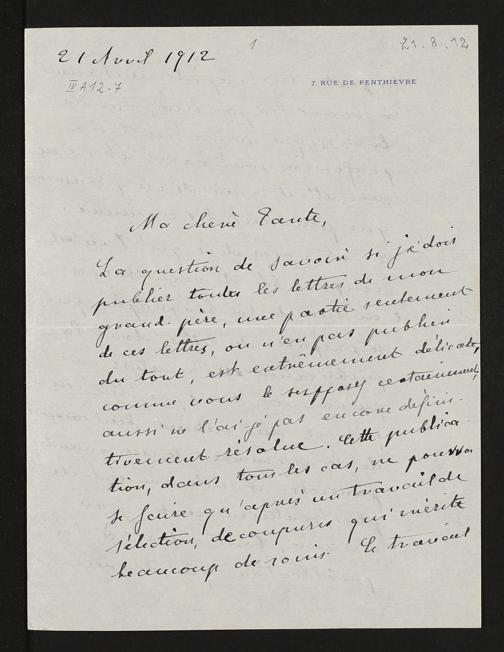 21 Avril 1912
1
21.8.12
IV A 12-7
7. RUE DE PENTHIÈVRE
Ma chère Tante,
La question de savoir si je dois
publier toutes les lettres de mon
grand-père, une partie seulement
de ces lettres, ou n'en pas publier
du tout, est extrêmement délicate,
comme vous le supposez certainement,
aussi ne l'ai-je pas encore défini-
tivement résolue. Cette publica-
tion, dans tous les cas, ne pourra
se faire qu'après un travail de
sélection, de coupures qui mérite
beaucoup de soins. Ce travail